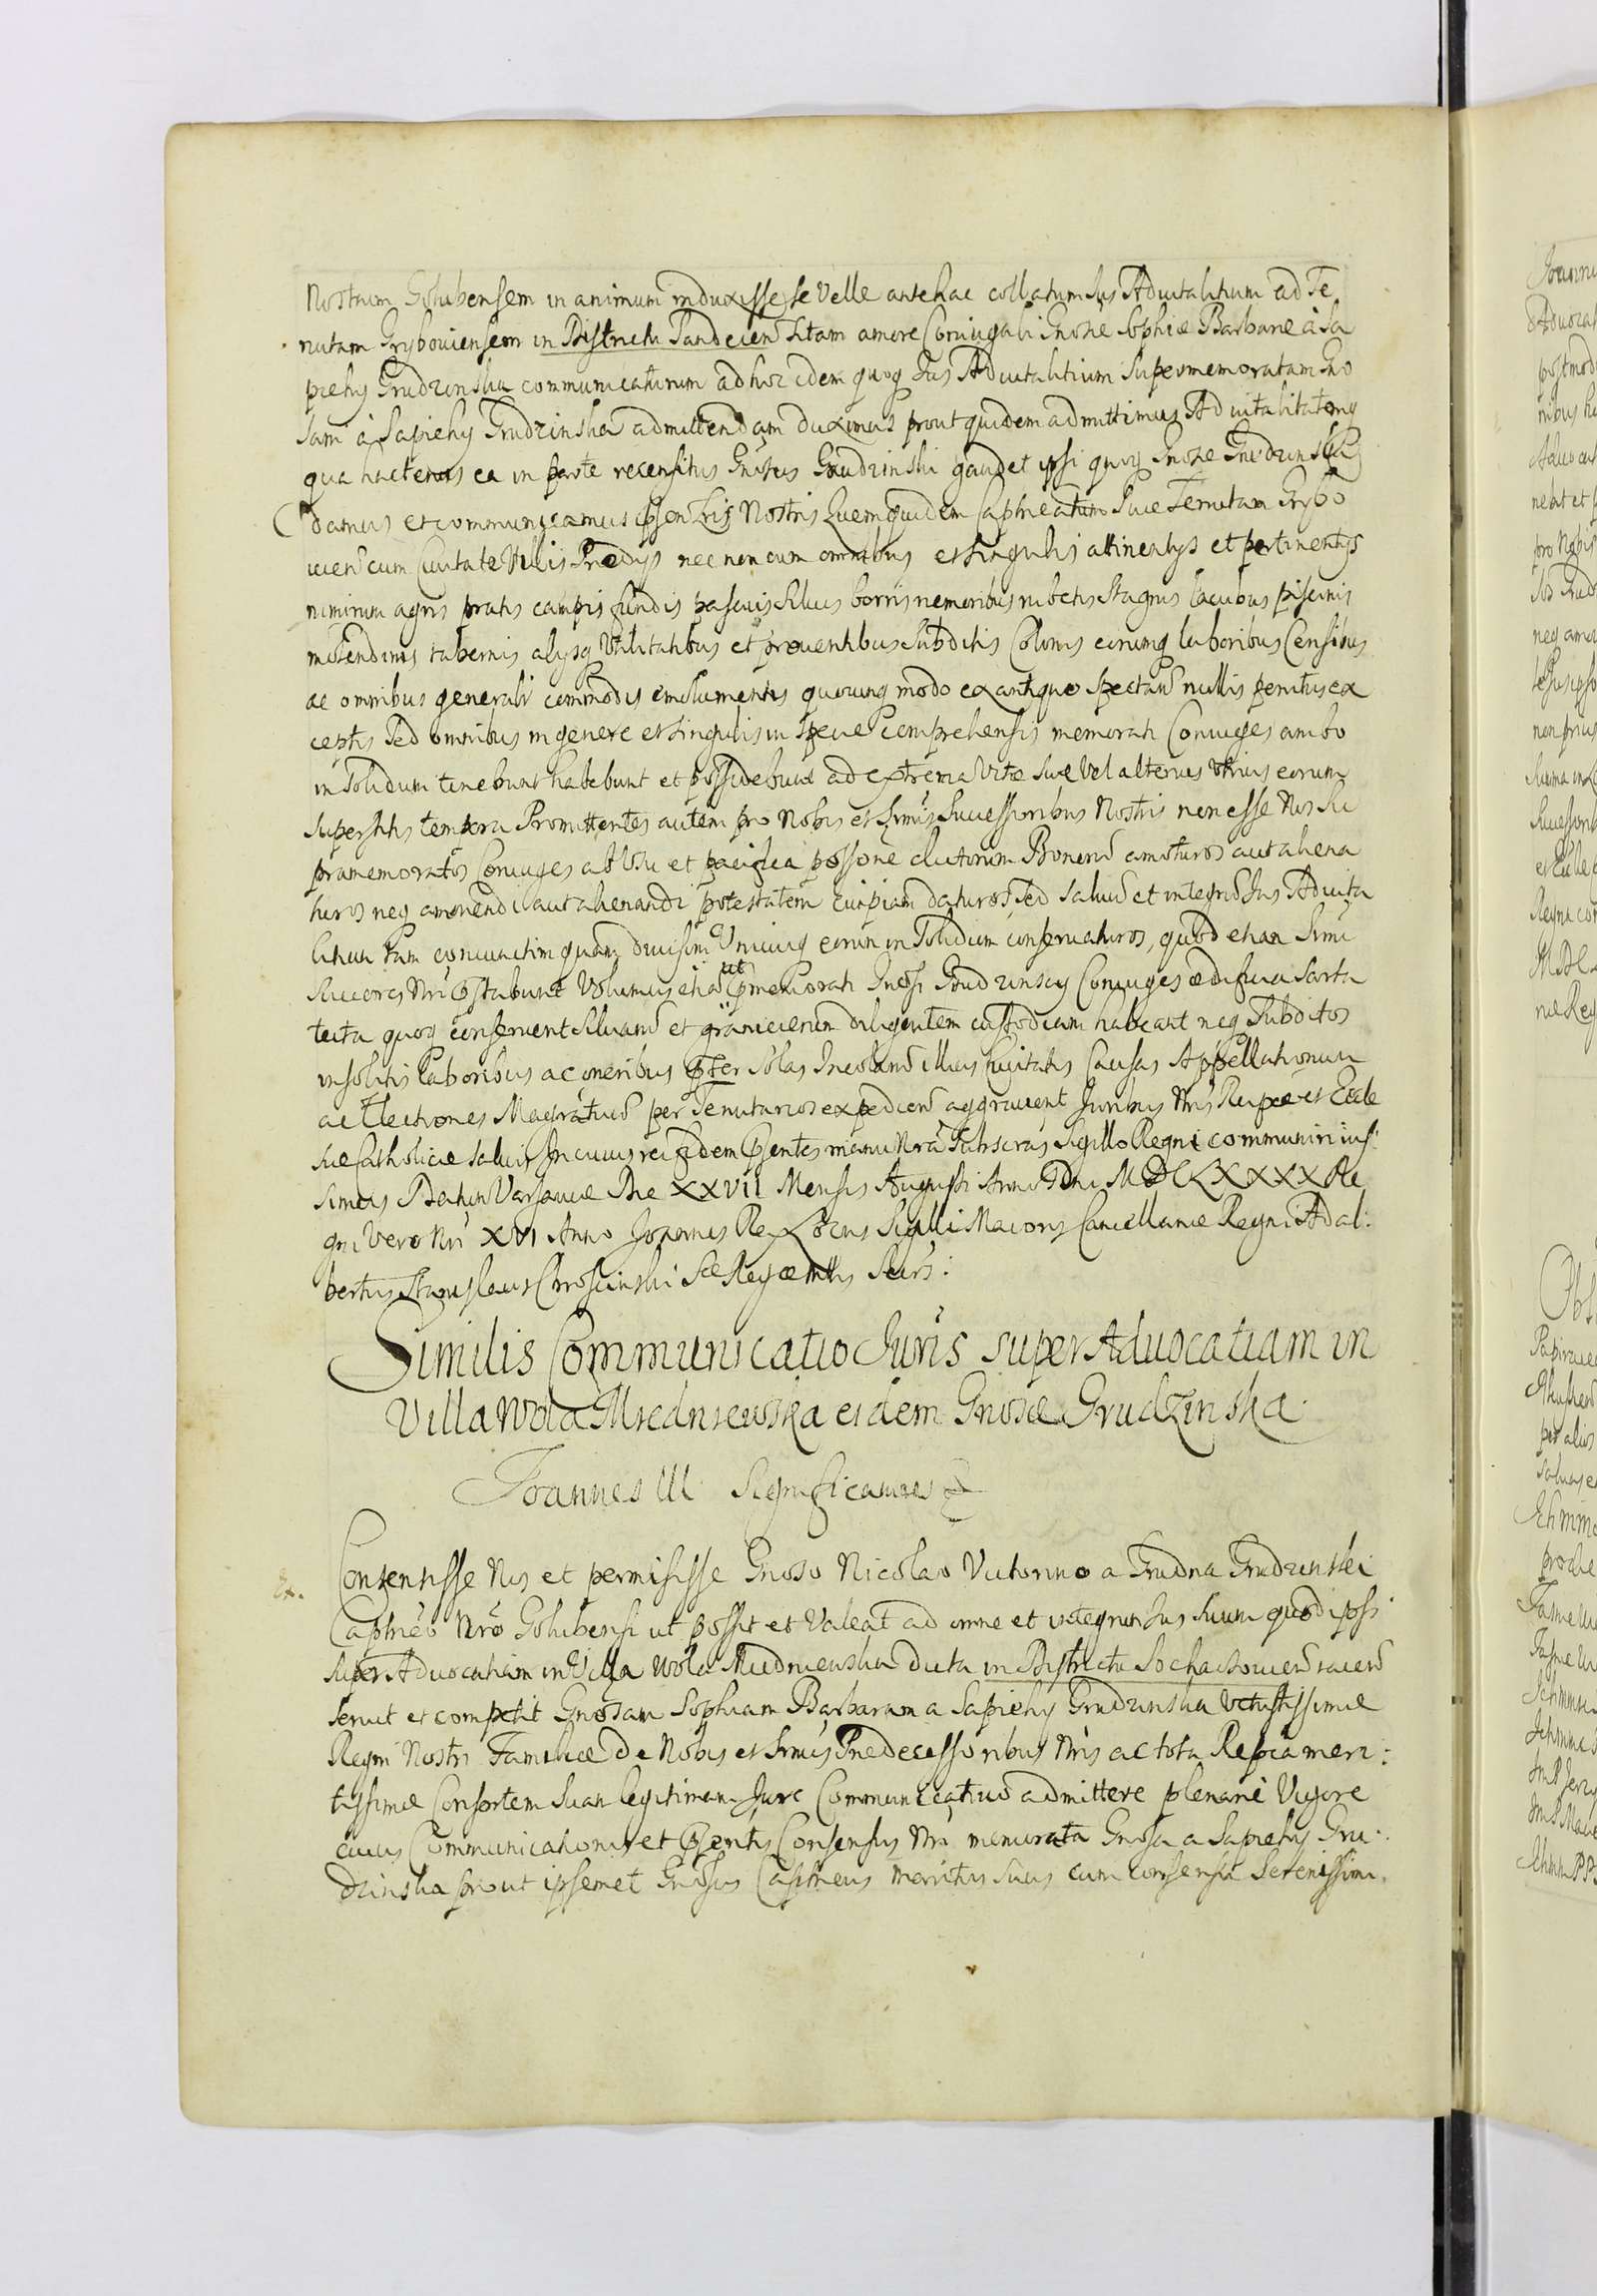 Nostrum Golubensem in animum induxisse se Velle antehac collatum Jus Advitalitium ad Te
nutam Grybouiensem in Districtu Sandecien sitam amore Coniugali Gnosae Sophiae Barbarae à Sa
piehy Grudzinska communicaturum ad hoc idem quoq Jus Advitalitium supermemoratam Gno
sam à Sapiehy Grudzinska admittendam duximus prout quidem admittimus Advitalitatemq
qua hactenus ea in parte recensitus Gnosus Grudzinski gaudet ipsi quoq Gnosae Grudzinska
damus et communicamus psen Lris Nostris Quemquidem Captneatum siue Tenutam Grybo
uien cum Ciuitate Villis Praedys nec non cum omnibus et singulis attinentys et pertinentys
nimirum agris pratis campis fundis pascuis siluis borris nemoribus rubetis stagnis lacubus piscinis
molendinis tabernis alysq Vtilitatibus et prouentibus subditis Colonis eorumq laboribus Censibus
ac omnibus generali commodis emolumentis quouunq modo ex antiquo spectan nullis penitus ex
ceptis sed omnibus in genere et singulis in specie comprehensis memorati Coniuges ambo
in solidum tenebunt habebunt et possidebunt ad extrema Vitae suae Vel alterius Vtrius eorum
superstitis tempora Promittentes autem pro Nobis et srmis Successoribus Nostris non esse Nos su
pramemoratos Coniuges ab Vsu et pacifica possone dictorum Bonorum amoturos aut aliena
turos neq amouendi aut alienandi potestatem cuipiam daturos sed saluum et integrum Jus Aduita
litium tam coniunctim quam diuisim Vnicuiq eorum in solidum conseruaturos, quod etiam srmi
Succores Nri pstabunt Volumus etiam ut pmemorati Gnosi Grudzinscy Coniuges aedificia sarta
tecta quoq conseruent siluarum et granicierum diligentem custodiam habeant neq subditos
insolitis laboribus ac oneribus pter solas Incolarum illius Ciuitatis Causas Appellationum
ac Electiones Magratuum per Tenutarios expedien aggrauent Juribus Nris Reipcae et Eccle
siae Catholicae saluis In cuius rei fidem psentes manu Nra subscras Sigillo Regni communiri ius:
simus Datum Varsauiae Die XXVII Mensis Augusti Anno Dni MDCLXXXX Re
gni Vero Nri XVI Anno Joannes Rex Locus Sigilli Maioris Cancellariae Regni Adal:
bertus Stanislaus Chroscinski Sae Regiae Mttis Secrs:
Similis Communicatio Juris super Aduocatiam in
Villa Wola Miedniewska eidem Gnosae Grudzinska
Joannes III Significamus &
Consensisse Nos et permisisse Gnoso Nicolao Victorino a Grudna Grudzinski
Captneo Nro Golubensi ut possit et Valeat ad omne et integrum Jus suum quod ipsi
super Aduocatiam in Villa Wola Miedniewska dicta in Districtu Sochaczouien iacen
seruit et competit Gnosam Sophiam Barbaram a Sapiehy Grudzinska Vetustissimae
Regni Nostri Familiae De Nobis et srmis Praedecessoribus Nris ac tota Repca meri:
tissimae Consortem suam legitimam Jure Communicatiuo admittere plenarie Vigore
cuius Communicationis et psentis Consensus Nri memorata Gnosa a Sapiehy Gru:
dzinska prout ipsemet Gnosus Captneus maritus suus cum consensu Serenissimi